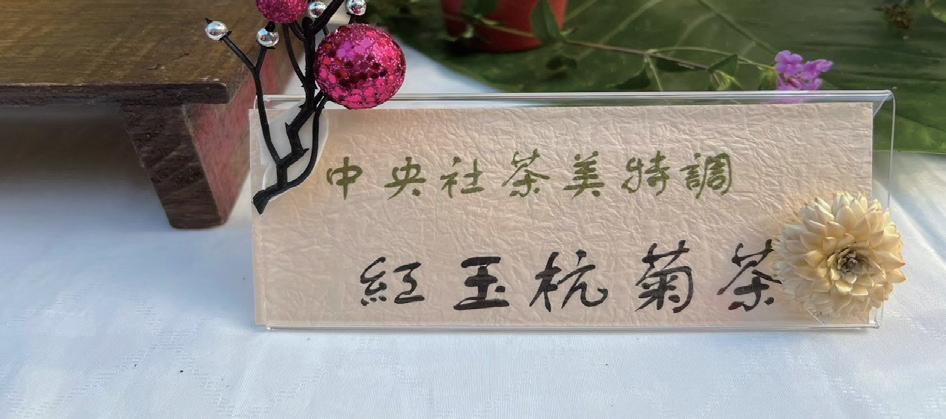 中央社茶美特調
紅玉杭菊茶